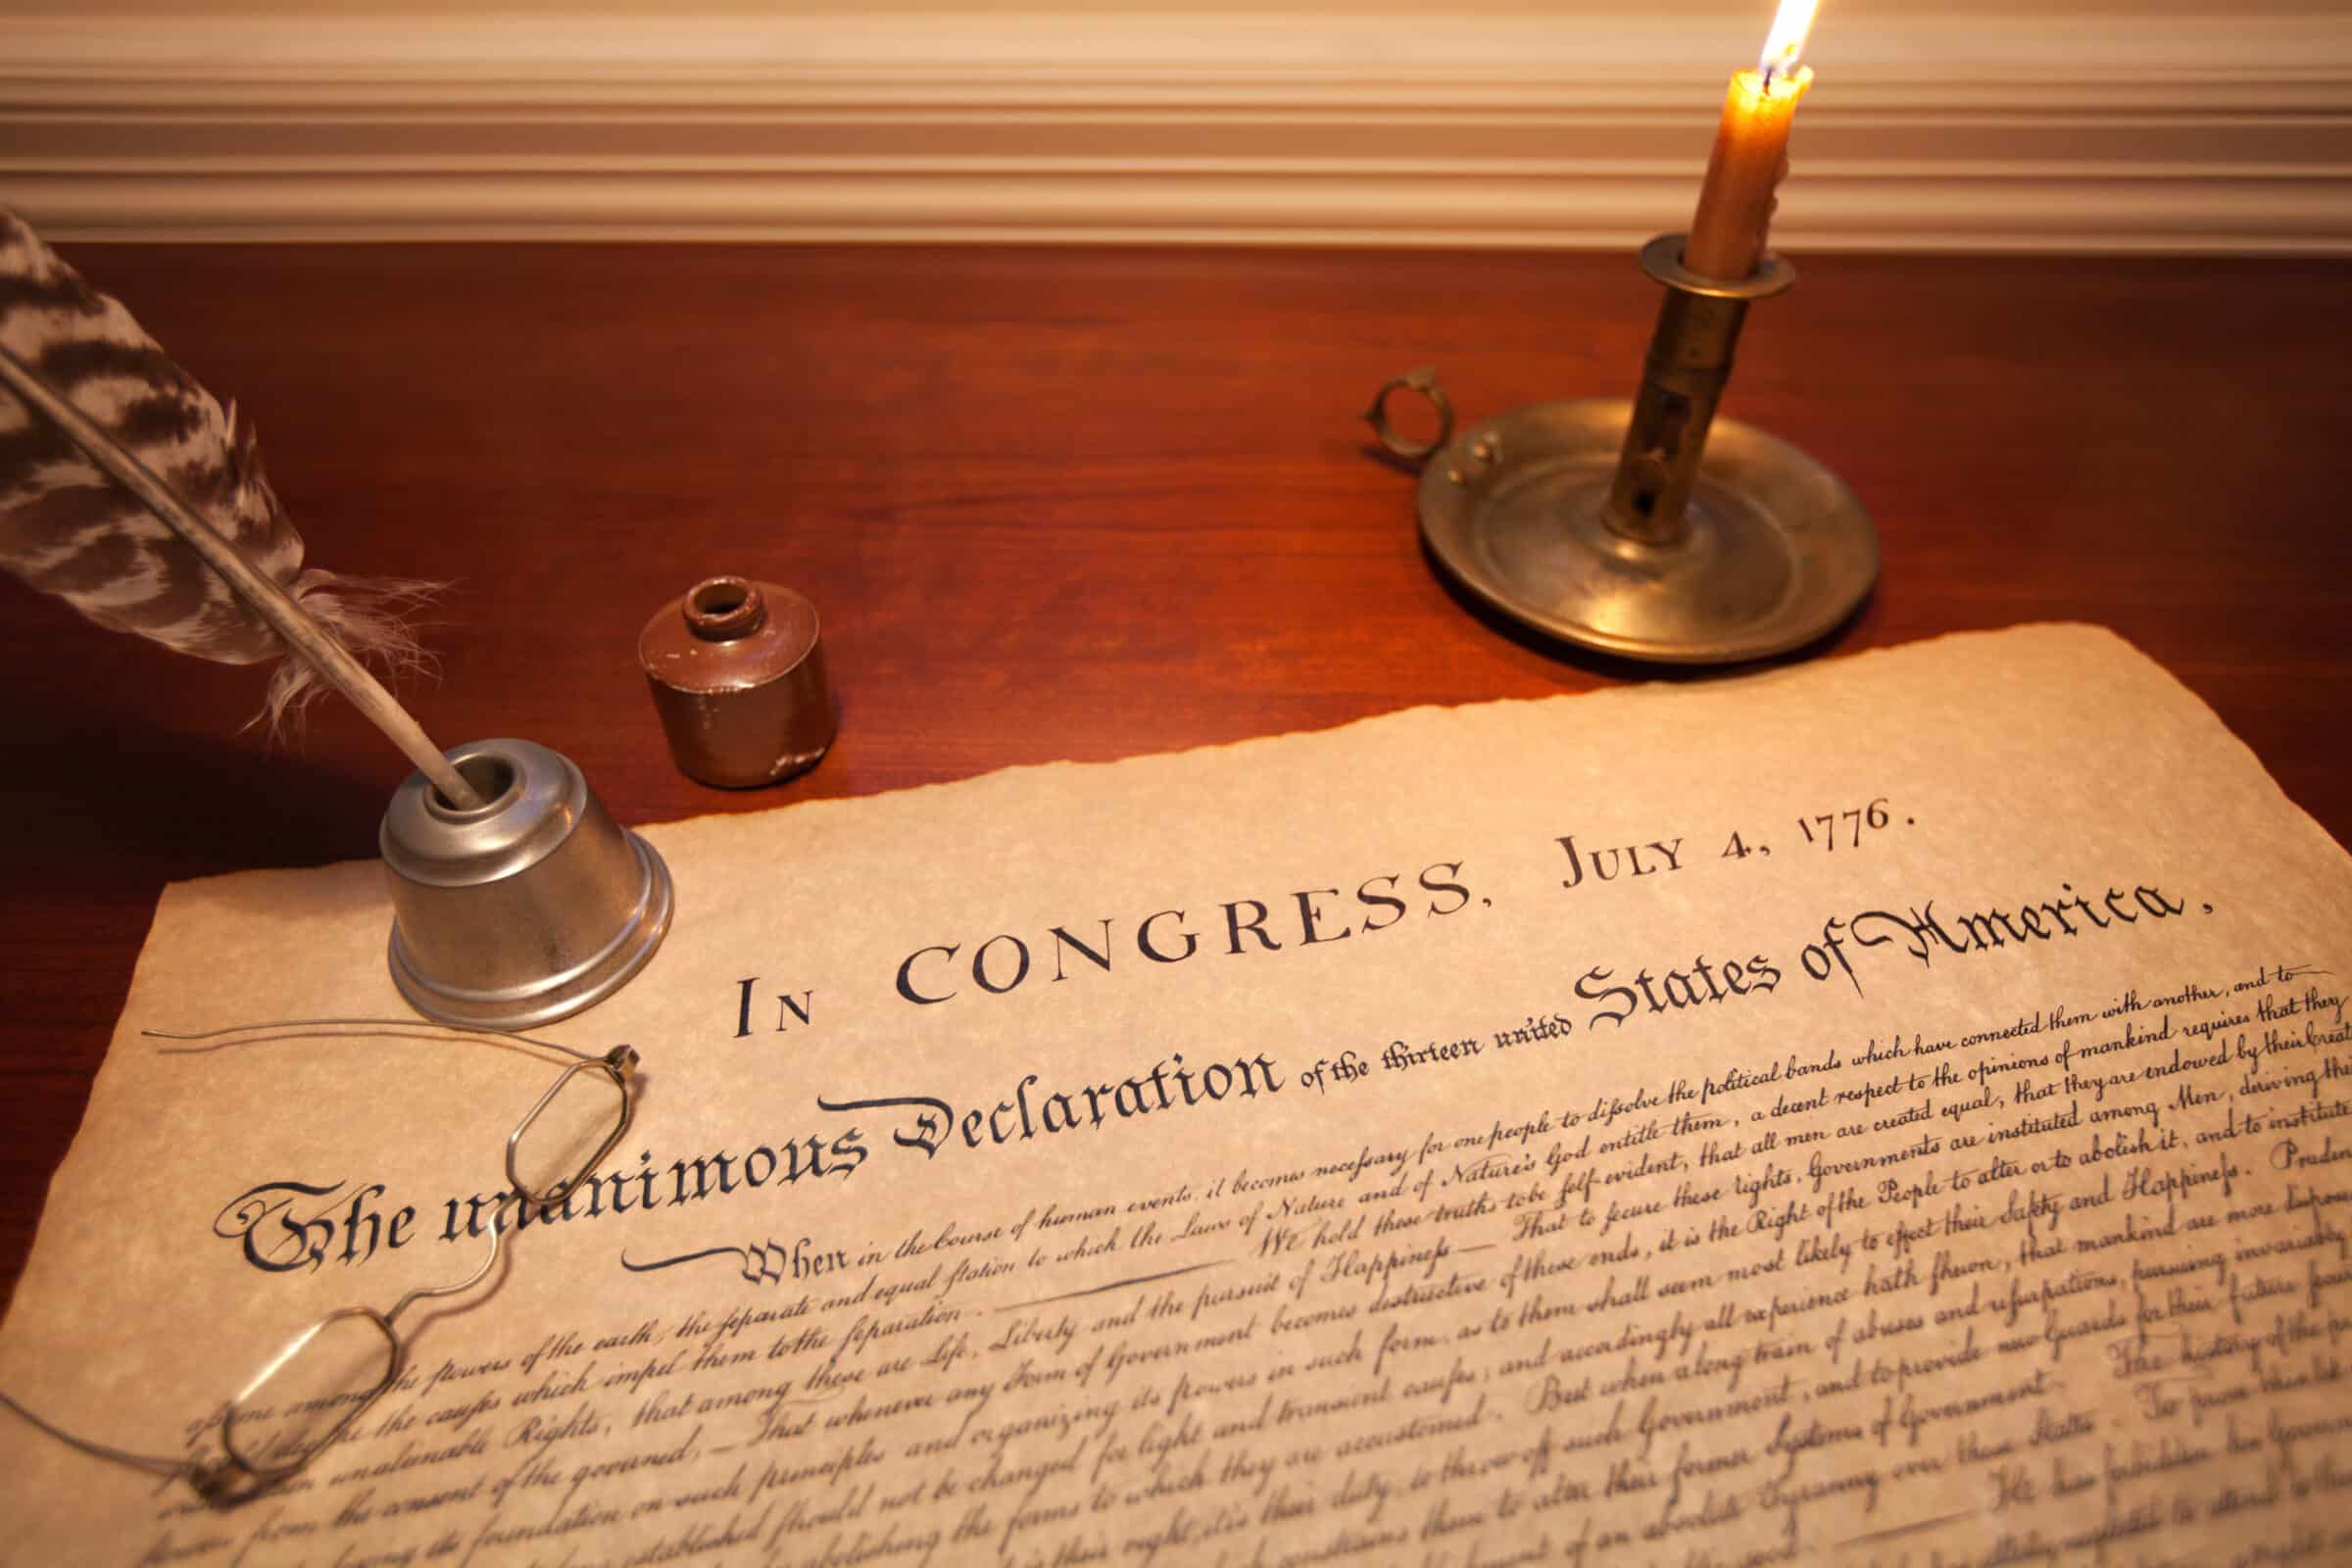 In CONGRESS, July 4, 1776.
The unanimous Declaration of the thirteen united States of America,
When in the Course of human events, it becomes necessary for one people to dissolve the political bands which have connected them with another, and to
among the powers of the earth, the separate and equal station to which the Laws of Nature and of Nature's God entitle them, a decent respect to the opinions of mankind requires that they
the causes which impel them to the separation. We hold these truths to be self-evident, that all men are created equal, that they are endowed by their Creat
unalienable Rights, that among these are Life, Liberty and the pursuit of Happiness— That to secure these rights, Governments are instituted among Men, deriving the
from the consent of the governed, — That whenever any Form of Government becomes destructive of these ends, it is the Right of the People to alter or to abolish it, and to institute
its foundation on such principles and organizing its powers in such form, as to them shall seem most likely to effect their Safety and Happiness. Pruden
established should not be changed for light and transient causes; and accordingly all experience hath shewn, that mankind are more dispos
abolishing the forms to which they are accustomed. But when a long train of abuses and usurpations, pursuing invariably
is their right, it is their duty, to throw off such Government, and to provide new Guards for their future
constrains them to alter their former Systems of Government. The history of the
of an absolute Tyranny over these States. To prove this
He has forbidden his Govern